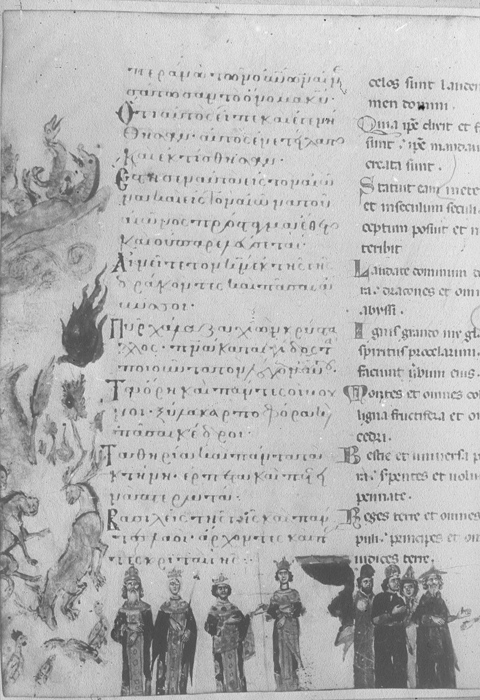 περάνω τῶν οὐνῶν αἰνε
σάτωσαν τὸ ὄνομα κυ·
Ὅτι αὐτὸς εἶπε καὶ ἐγενή
θησαν· αὐτὸς ἐνετείλατο
καὶ ἐκτίσθησαν·
Ἔστησεν αὐτὰ εἰς τὸν αἰῶ
να καὶ εἰς τὸν αἰῶνα τοῦ
αἰῶνος· πρόσταγμα ἔθετο
καὶ οὐ παρελεύσεται·
Αἰνεῖτε τὸν κν ἐκ τῆς γῆς
δράκοντες καὶ πᾶσαι
ἄβυσσοι·
Πῦρ χάλαζα χιὼν κρύστα
λλος· πνα καταιγίδος τὰ
ποιοῦντα τὸν λόγον αὐτοῦ·
Τὰ ὄρη καὶ πάντες οἱ βου
νοί· ξύλα καρποφόρα καὶ
πᾶσαι κέδροι·
Τὰ θηρία καὶ πάντα τὰ
κτήνη· ἑρπετὰ καὶ πετει
νὰ πτερωτά·
Βασιλεῖς τῆς γῆς καὶ πάν
τες λαοί· ἄρχοντες καὶ πάν
τες κριταὶ γῆς·
celos sunt lauden
men domini.
Quia ipe dixit et f
sunt: ipe mandau
creata sunt.
Statuit eam in ete
et in seculum seculi
ceptum posuit et n
teribit
Laudate dominum d
ra: dracones et omn
abyssi.
Ignis grando nix gla
spiritus procelarum.
faciunt uerbum eius.
Montes et omnes col
ligna fructifera et o
cedri.
Bestie et uniuersa p
ra: serpentes et uolu
pennate.
Reges terre et omnes
puli: principes et om
iudices terre.